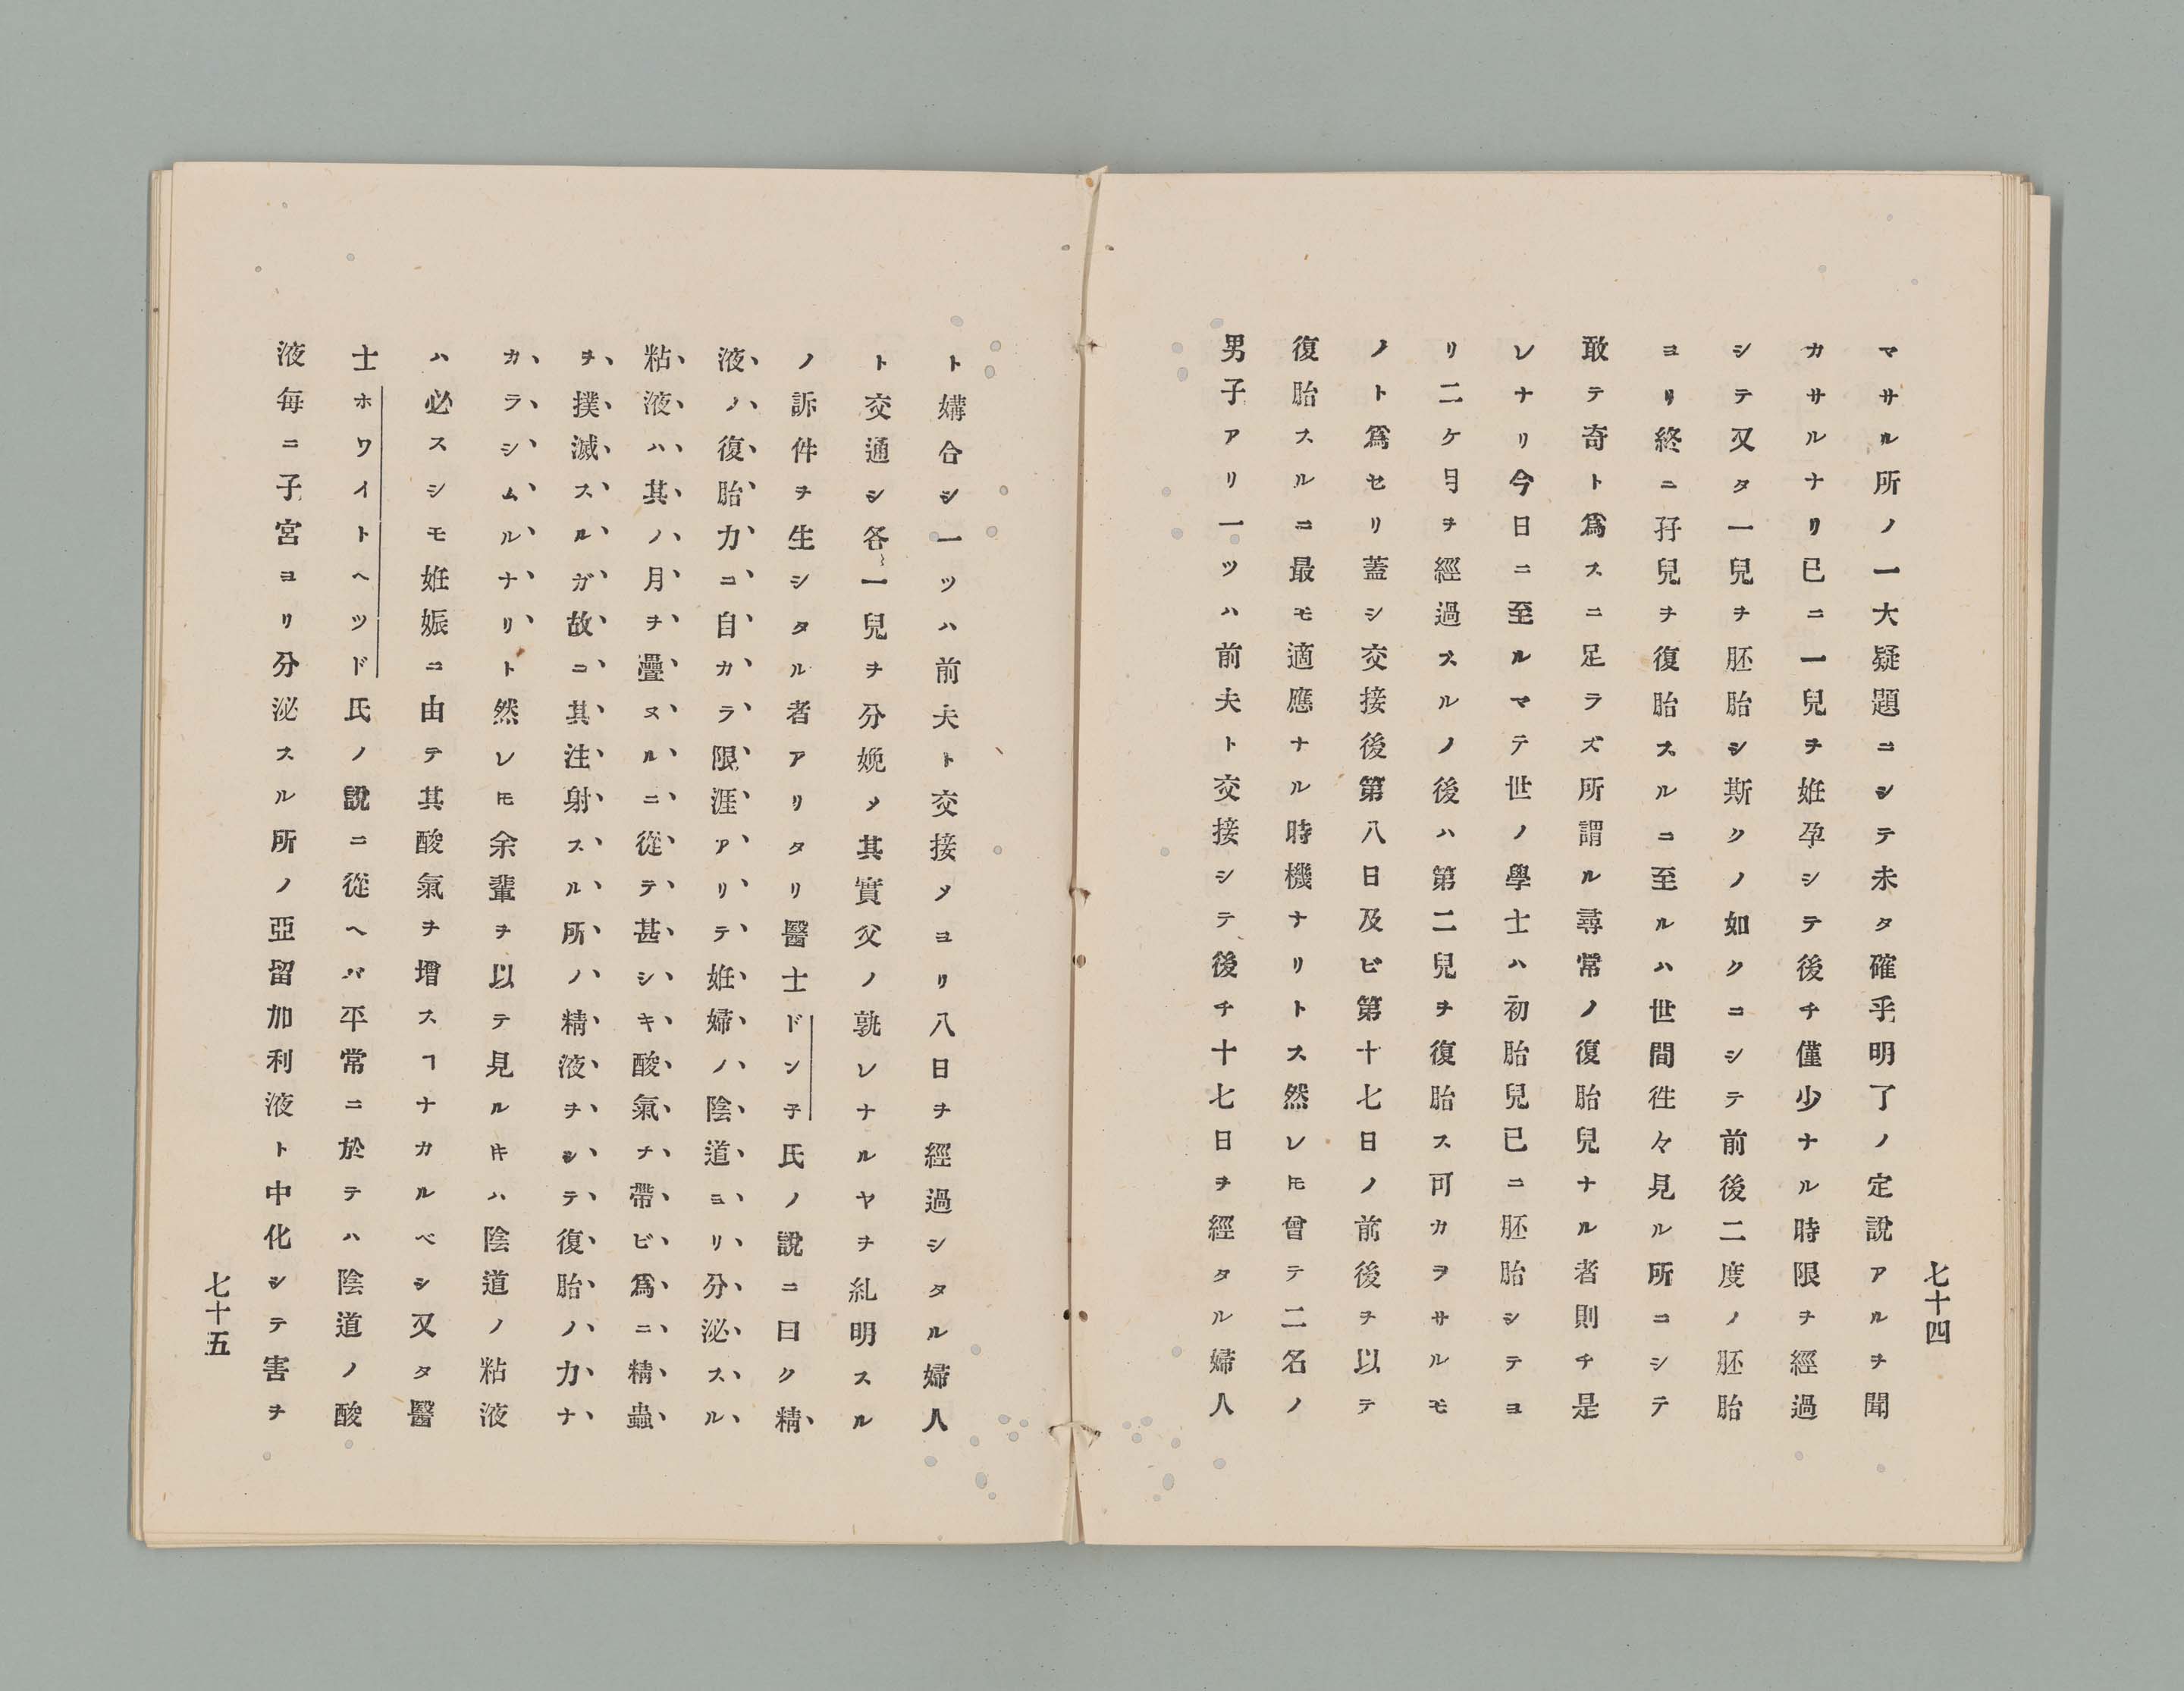 七十四
マサル所ノ一大疑題ニシテ未タ確乎明了ノ定說アルヲ聞
カサルナリ已ニ一兒ヲ姙孕シテ後チ僅少ナル時限ヲ經過
シテ又タ一兒ヲ胚胎シ斯クノ如クニシテ前後二度ノ胚胎
ヨリ終ニ孖兒ヲ復胎スルニ至ルハ世間徃々見ル所ニシテ
敢テ奇ト爲スニ足ラズ所謂ル尋常ノ復胎兒ナル者則チ是
レナリ今日ニ至ルマテ世ノ學士ハ初胎兒已ニ胚胎シテヨ
リ二ケ月ヲ經過スルノ後ハ第二兒ヲ復胎ス可カヲサルモ
ノト爲セリ蓋シ交接後第八日及ビ第十七日ノ前後ヲ以テ
復胎スルニ最モ適應ナル時機ナリトス然レ𪜈曾テ二名ノ
男子アリ一ツハ前夫ト交接シテ後チ十七日ヲ經タル婦人
ト媾合シ一ツハ前夫ト交接メヨリ八日ヲ經過シタル婦人
ト交通シ各一兒ヲ分娩メ其實父ノ孰レナルヤヲ糺明スル
ノ訴件ヲ生シタル者アリタリ醫士ドン子氏ノ說ニ曰ク精、
液、ノ、復、胎、力、ニ、自、カ、ラ、限、涯、ア、リ、テ、姙、婦、ノ、陰、道、ヨ、リ、分、泌、ス、ル、
粘、液、ハ、其、ノ、月、ヲ、疊、ヌ、ル、ニ、從、テ、甚、シ、キ、酸、氣、チ、帶、ビ、爲、ニ、精、蟲、
ヲ、撲、滅、ス、ル、ガ、故、ニ、其、注、射、ス、ル、所、ノ、精、液、ヲ、シ、テ、復、胎、ノ、力、ナ、
カ、ラ、シ、ム、ル、ナ、リ、ト然レ𪜈余輩ヲ以テ見ル𪜀ハ陰道ノ粘液
ハ必スシモ姙娠ニ由テ其酸氣ヲ增スヿナカルベシ又タ醫
士ホワイトヘツド氏ノ說ニ從ヘバ平常ニ於テハ陰道ノ酸
液每ニ子宮ヨリ分泌スル所ノ亞留加利液ト中化シテ害ヲ
七十五